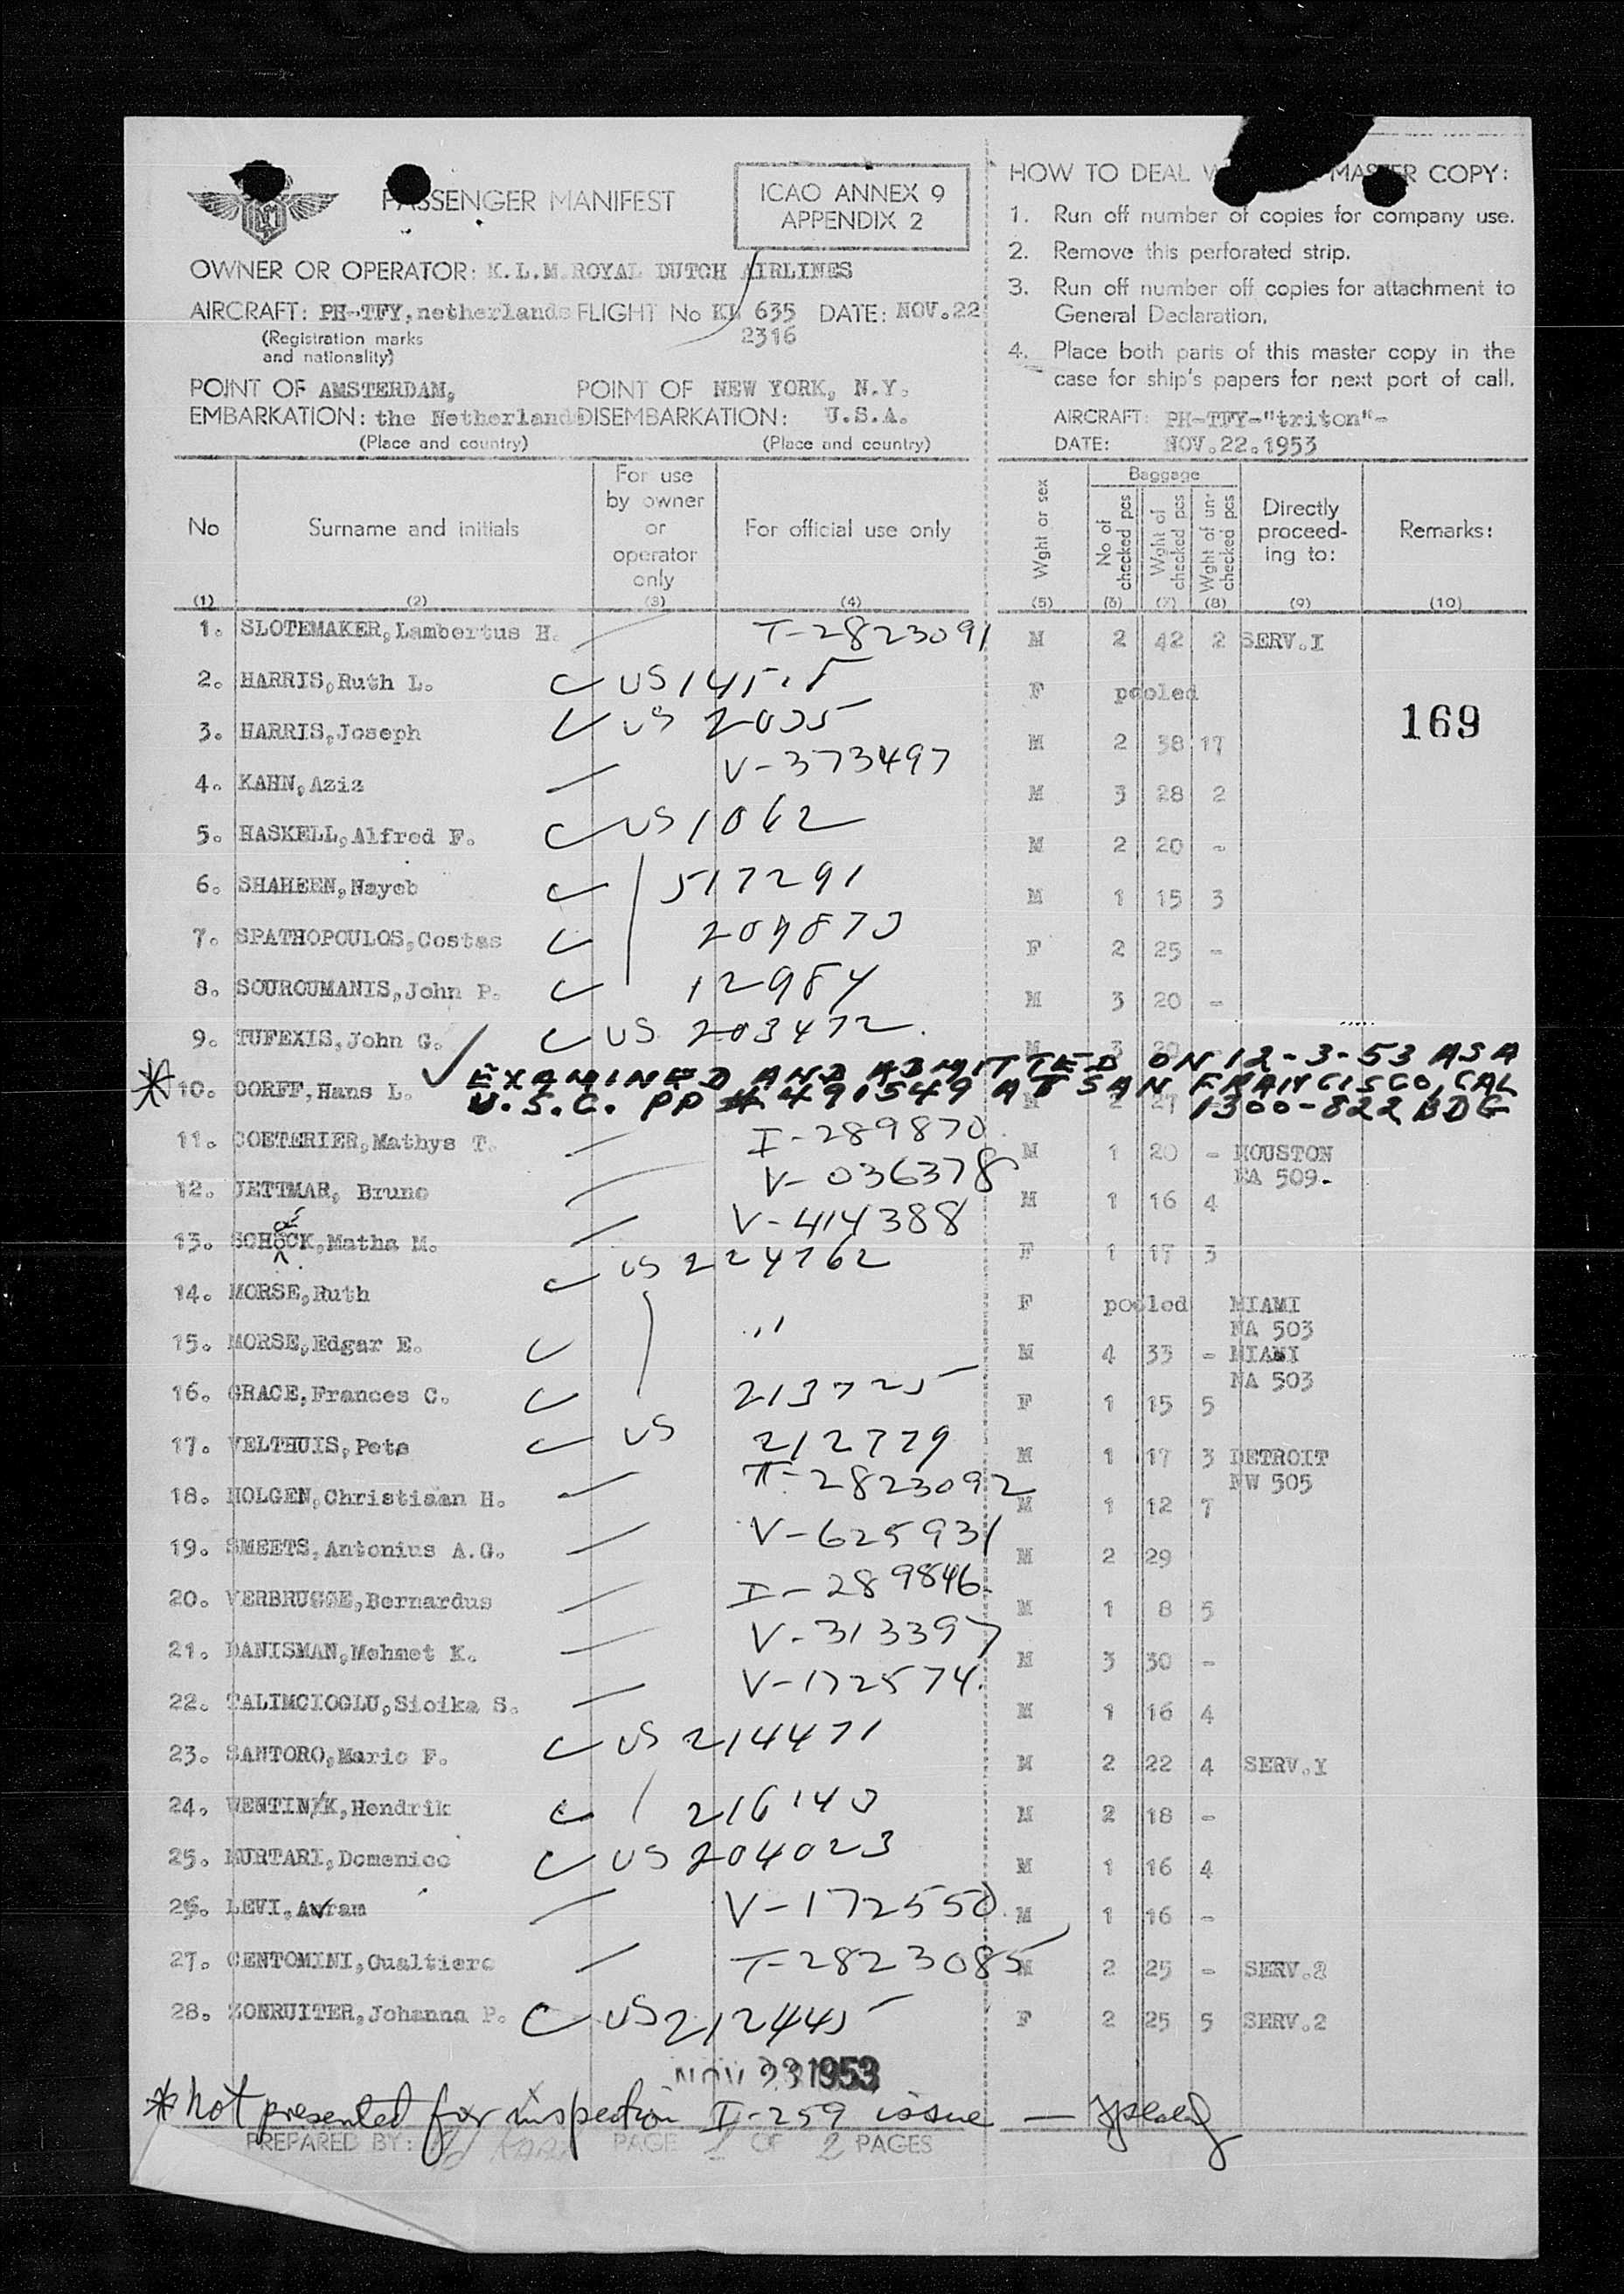 PASSENGER MANIFEST
ICAO ANNEX 9
APPENDIX 2
OWNER OR OPERATOR: K.L.M. ROYAL DUTCH AIRLINES
AIRCRAFT: PH-TFY, netherlands FLIGHT No KL 635 DATE: NOV.22
(Registration marks and nationality) 2316
POINT OF EMBARKATION: AMSTERDAM, the Netherlands
(Place and country)
POINT OF DISEMBARKATION: NEW YORK, N.Y. U.S.A.
(Place and country)
HOW TO DEAL MASTER COPY:
1. Run off number of copies for company use.
2. Remove this perforated strip.
3. Run off number off copies for attachment to
General Declaration.
4. Place both parts of this master copy in the
case for ship's papers for next port of call.
AIRCRAFT: PH-TFY-"triton"-
DATE: NOV.22.1953
No (1) Surname and initials (2) For use by owner or operator only (3) For official use only (4) Wght or sex (5) Baggage No of checked pcs (6) Wght of checked pcs (7) Wght of un-checked pcs (8) Directly proceed-ing to: (9) Remarks: (10)
1. SLOTEMAKER, Lambertus H. T-2823091 M 2 42 2 SERV.I
2. HARRIS, Ruth L. US F pooled
3. HARRIS, Joseph US M 2 38 17
169
4. KAHN, Aziz V-373497 M 3 28 2
5. HASKELL, Alfred F. US 1062 M 2 20 -
6. SHAHEEN, Nayeb 517291 M 1 15 3
7. SPATHOPOULOS, Costas F 2 25 -
8. SOUROUMANIS, John P. 12984 M 3 20 -
9. TUFEXIS, John G. US 203472. M 3 20
* 10. DORFF, Hans L. EXAMINED AND ADMITTED ON 12-3-53 AS A
U.S.C. PP # 491549 AT SAN FRANCISCO, CAL
1300-822 BDG
M 2 27
11. COETERIER, Mathys T. I-289870 M 1 20 - HOUSTON
EA 509.
12. JETTMAR, Bruno V-036378 M 1 16 4
13. SCHOCK, Matha M. V-414388 F 1 17 3
14. MORSE, Ruth US 224762 F pooled MIAMI
NA 503
15. MORSE, Edgar E. " M 4 33 - MIAMI
NA 503
16. GRACE, Frances C. 213725 F 1 15 5
17. VELTHUIS, Pete US 212779 M 1 17 3 DETROIT
NW 505
18. HOLGEN, Christiaan H. T-2823092 M 1 12 7
19. SMEETS, Antonius A.G. V-625931 M 2 29
20. VERBRUGGE, Bernardus I-289846. M 1 8 5
21. DANISMAN, Mehmet K. V-313397 M 3 30 -
22. TALIMCIOGLU, Sioika S. V-172574. M 1 16 4
23. SANTORO, Mario F. US 214471 M 2 22 4 SERV.I
24. WENTINK, Hendrik 216143 M 2 18 -
25. MURTARI, Domenico US 204023 M 1 16 4
26. LEVI, Avram V-172550 M 1 16 -
27. CENTOMINI, Gualtiero T-2823085 M 2 25 - SERV.2
28. ZONRUITER, Johanna P. US 212445 F 2 25 5 SERV.2
NOV 23 1953
* Not presented for inspection I-259 issue —
PREPARED BY: PAGE 1 OF 2 PAGES